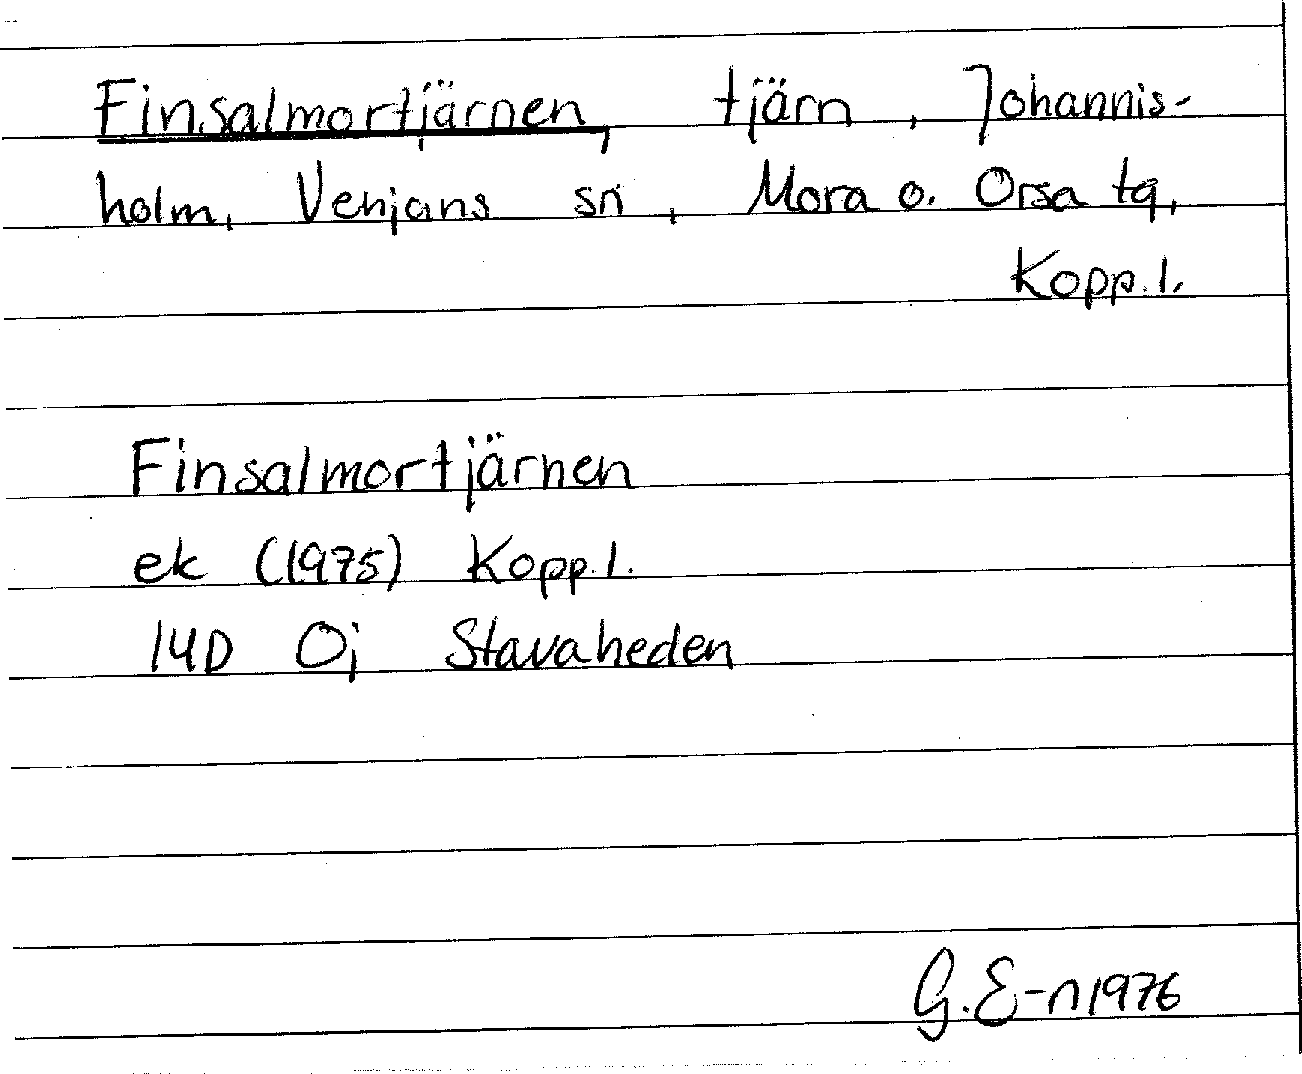 Finsalmortjärnen, tjärn, Johannis-
holm, Venjans sn, Mora o. Orsa tg,
Kopp. l.
Finsalmortjärnen
ek (1975) Kopp. l.
14D 0j Stavaheden
G. E-n 1976